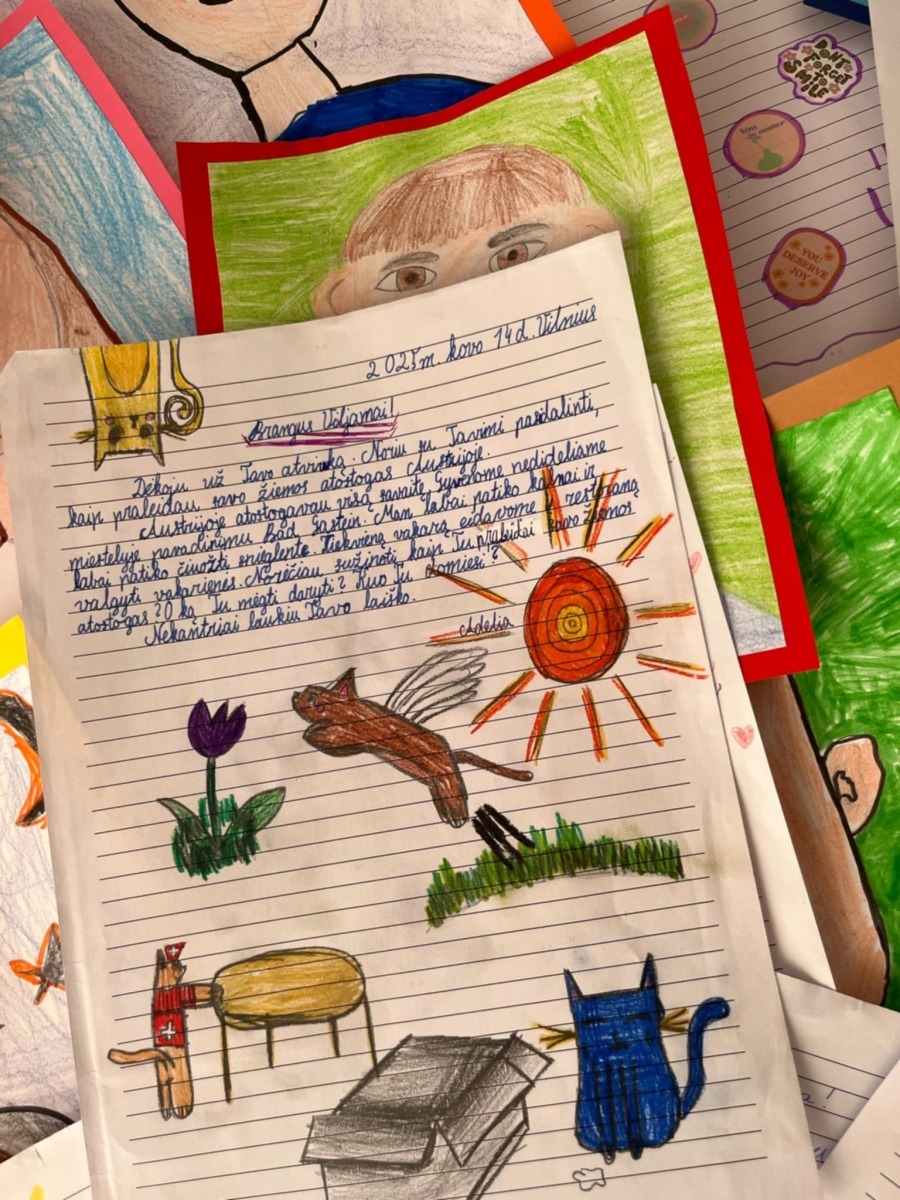 DON'T
FORGET
TO
SMILE
YOU
DESERVE
JOY
2025m. kovo 14d. Vilnius
Brangus Viljamai!
Dėkoju už Tavo atviruką. Noriu su Tavimi pasidalinti,
kaip praleidau savo žiemos atostogas Austrijoje.
Austrijoje atostogavau visą savaitę. Gyvenome nedideliame
miestelyje pavadinimu Bad Gastein. Man labai patiko kalnai ir
labai patiko čiuožti snieglente. Kiekvieną vakarą eidavome į restoraną
valgyti vakarienės. Norėčiau sužinoti kaip Tu praleidai savo žiemos
atostogas? O ką Tu mėgti daryti? Kuo Tu domiesi?
Nekantriai laukiu Tavo laiško.
Adelia